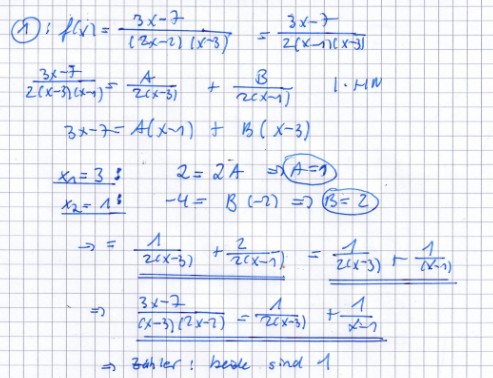 ① : f(x) = (3x-7)/((2x-2)(x-3)) = (3x-7)/(2(x-1)(x-3))
(3x-7)/(2(x-3)(x-1)) = A/(2(x-3)) + B/(2(x-1)) | · HN
3x-7 = A(x-1) + B(x-3)
x₁=3 : 2 = 2A ⇒ A=1
x₂=1 : -4 = B(-2) ⇒ B=2
⇒ = 1/(2(x-3)) + 2/(2(x-1)) = 1/(2(x-3)) + 1/(x-1)
⇒ (3x-7)/((x-3)(2x-2)) = 1/(2(x-3)) + 1/(x-1)
⇒ Zähler : beide sind 1